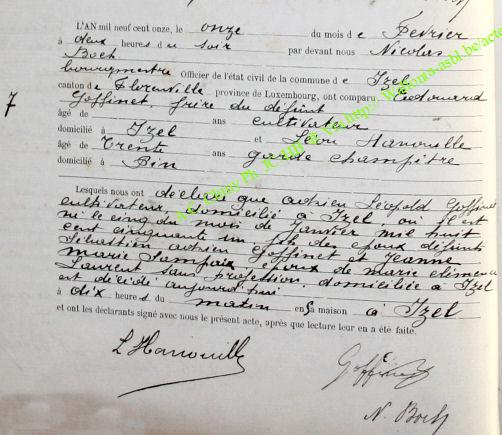 L'AN mil neuf cent onze, le onze du mois de Février
à deux heures du soir par devant nous Nicolas
Boch
bourgmestre Officier de l'état civil de la commune de Izel
canton de Florenville province de Luxembourg, ont comparu Edouard
7
Goffinet, frère du défunt
âgé de ans cultivateur
domicilié à Izel et Léon Hanouille
âgé de Trente ans garde champêtre
domicilié à Pin
Lesquels nous ont déclaré que Adrien Léopold Goffinet
cultivateur, domicilié à Izel où il est
né le cinq du mois de Janvier mil huit
cent cinquante un fils des époux défunts
Sébastien Adrien Goffinet et Jeanne
Marie époux de Marie Clémence
Laurent sans profession domiciliée à Izel
est décédé aujourd'hui
à dix heures du matin en sa maison à Izel
et ont les déclarants signé avec nous le présent acte, après que lecture leur en a été faite.
L Hanouille
Goffinet
N. Boch